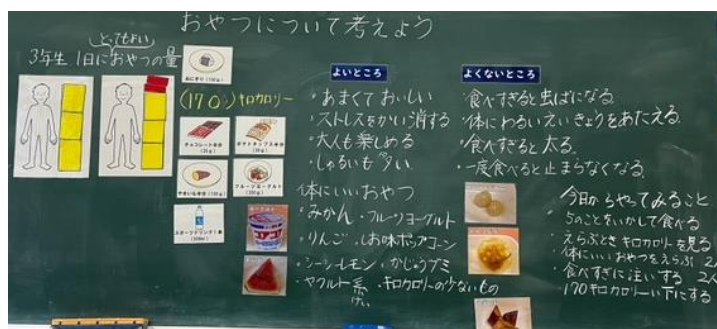 おやつについて考えよう
とってもよい
3年生 1日におやつの量
おにぎり(100g)
(170)キロカロリー
チョコレート半分
(25g)
ポテトチップス半分
(30g)
やきいも半分(100g)
フルーツヨーグルト
(200g)
スポーツドリンク1本
(500ml)
よいところ
・あまくておいしい
・ストレスをかい消する
・大人も楽しめる
・しゅるいも多い
体にいいおやつ
・みかん・フルーツヨーグルト
・りんご・しお味ポップコーン
・シーシーレモン・かじゅうグミ
・ヤクルト系・キロカロリーの少ないもの
けい
よくないところ
・食べすぎると虫ばになる
・体にわるいえいきょうをあたえる
・食べすぎると太る
・一度食べると止まらなくなる
今日からやってみること
・5のことをいかして食べる
えらぶときキロカロリーを見る
体にいいおやつをえらぶ 2人
・食べすぎに注いする 2人
170キロカロリーい下にする